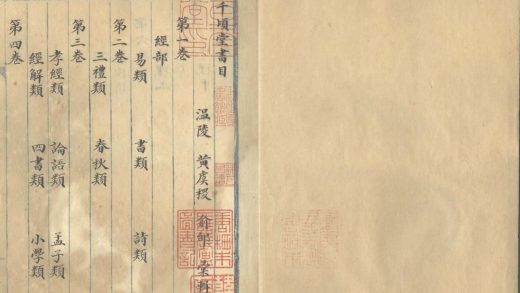 千頃堂書目
温陵 黄虞稷 俞邰 輯
第一卷
經部
易類 書類 詩類
第二卷
三禮類 春秋類
第三卷
孝經類 論語類 孟子類
經解類 四書類 小學類
第四卷